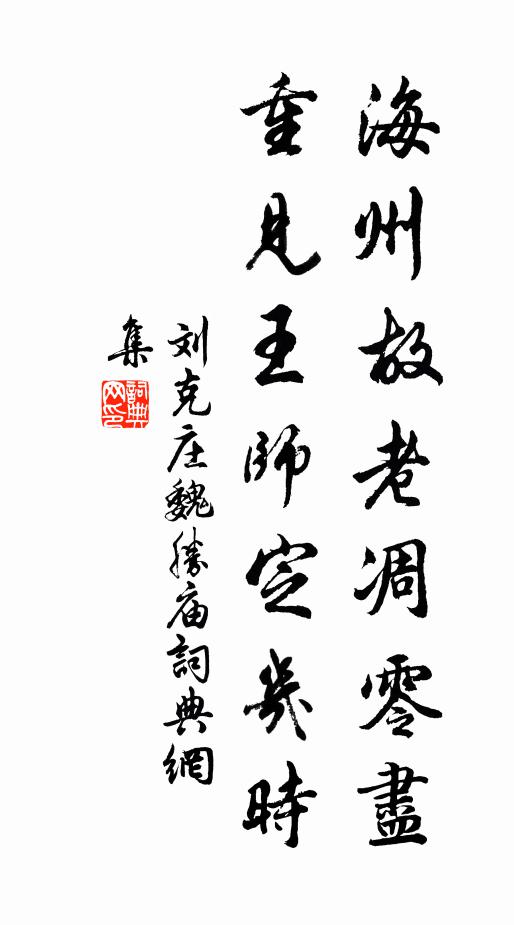 海州故老凋零盡
重見王師定幾時
刘克庄魏勝庙詞典網
集
詞典网印